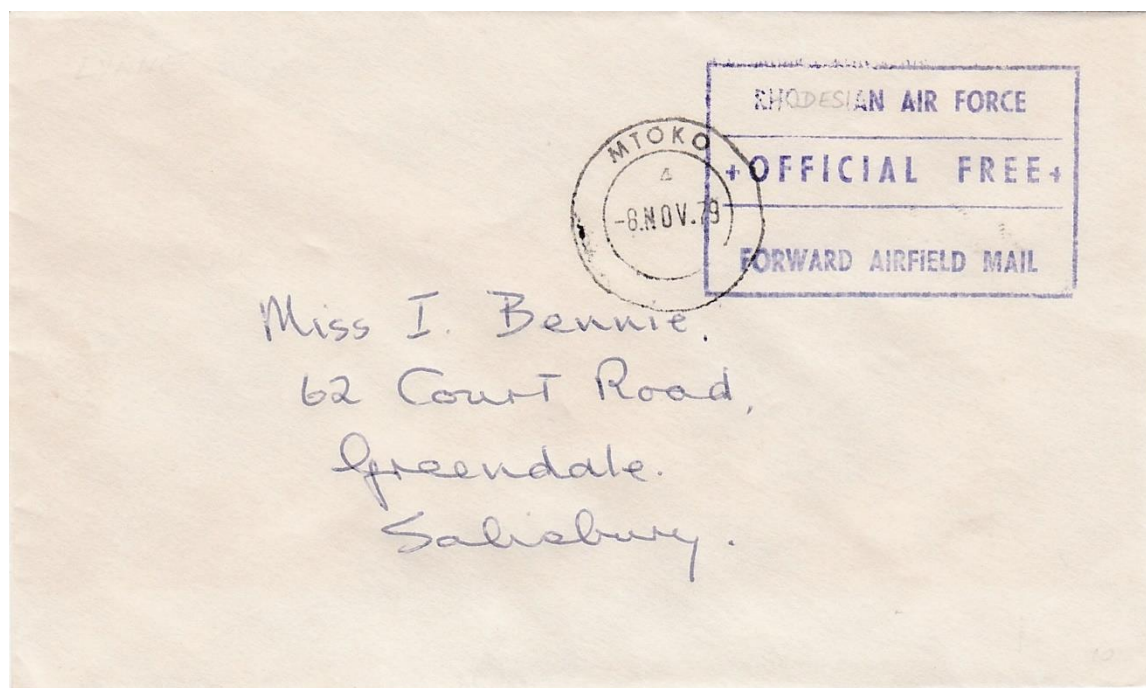 RHODESIAN AIR FORCE
+OFFICIAL FREE+
FORWARD AIRFIELD MAIL
MTOKO
4
-8.NOV.79
Miss I. Bennie.
62 Court Road,
Greendale.
Salisbury.